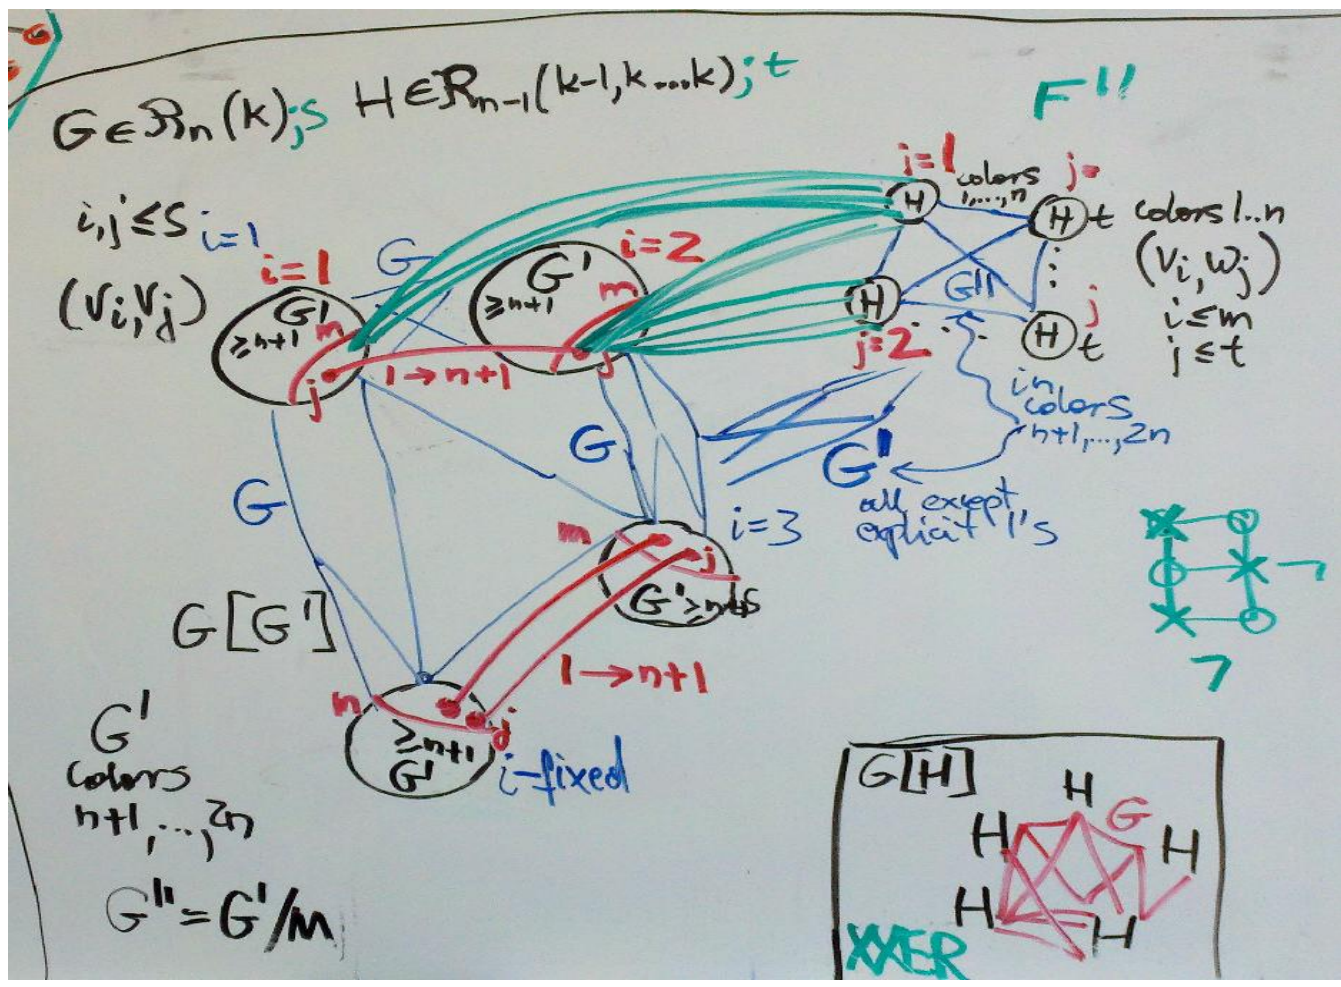 G∈ℛn(k);s H∈ℛn-1(k-1,k...k);t
F''
i,j≤s
(vi,vj)
i=1
i=1
G
G'
≥n+1
m
j
i=2
G'
≥n+1
m
j
1→n+1
j=1
H
colors
1,...,n
j=
H t
H
G''
j=2
j
H t
colors 1..n
(vi,wj)
i≤m
j≤t
in
colors
n+1,...,2n
G'
all except
explicit 1's
G
G
i=3
m
j
G'
1→n+1
G[G']
m
j
≥n+1
G'
i-fixed
G'
colors
n+1,...,2n
G''=G'/m
7
7
G[H]
H
G
H
H
H
H
XXER